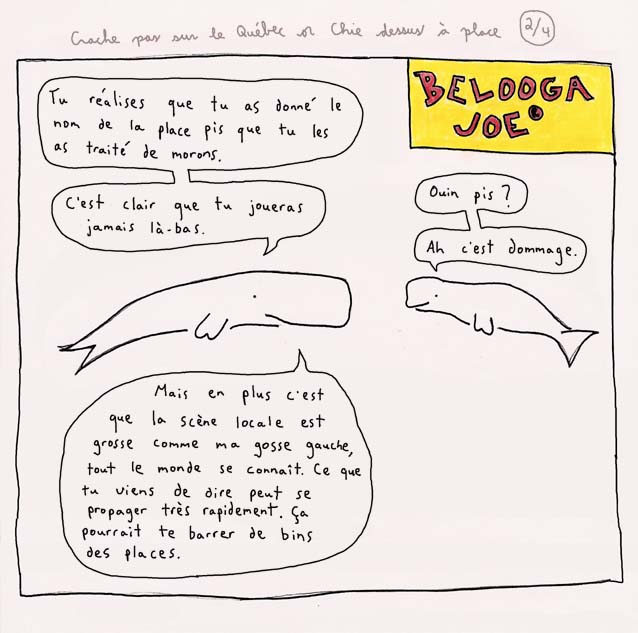 Crache pas sur le Québec or Chie dessus à place 2/4
BELOOGA
JOE
Tu réalises que tu as donné le
nom de la place pis que tu les
as traité de morons.
C'est clair que tu joueras
jamais là-bas.
Ouin pis ?
Ah c'est dommage.
Mais en plus c'est
que la scène locale est
grosse comme ma gosse gauche,
tout le monde se connaît. Ce que
tu viens de dire peut se
propager très rapidement. Ça
pourrait te barrer de bins
des places.